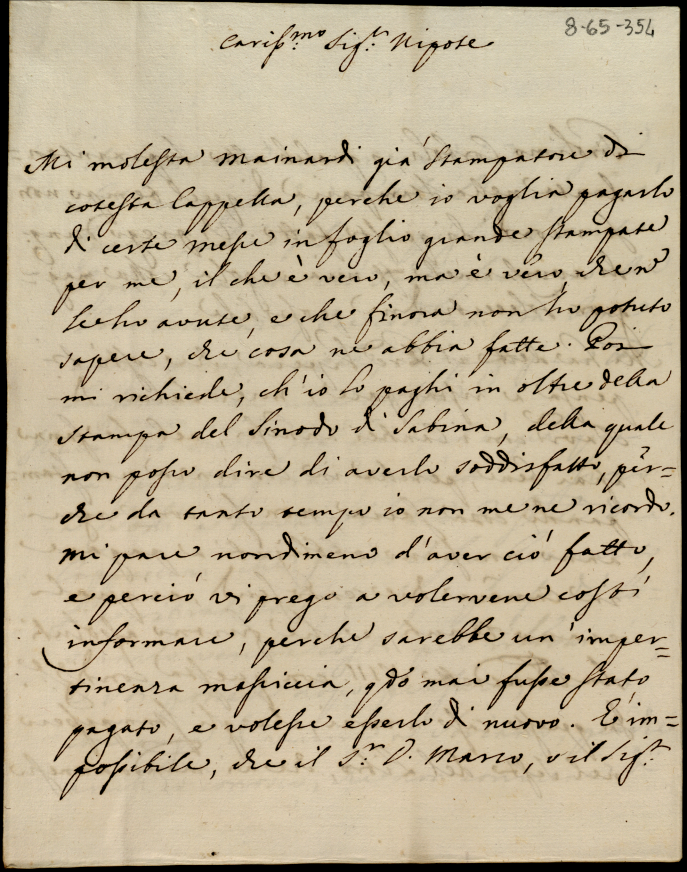 8-65-354
Cariss.mo Sig.r Nipote
Mi molesta Mainardi già Stampatore di
cotesta Cappella, perche io voglia pagarlo
di certe messe in foglio grande stampate
per me, il che è vero, ma è vero, che n'
le ho avute, e che finora non ho potuto
sapere, che cosa ne abbia fatte. Poi
mi richiede, ch'io lo paghi in oltre della
stampa del Sinodo di Sabina, della quale
non posso dire di averlo soddisfatto, per=
che da tanto tempo io non me ne ricordo.
Mi pare nondimeno d'aver ciò fatto,
e perciò vi prego a volervene costì
informare, perche sarebbe un'imper=
tinenza massiccia, qdo mai fusse stato
pagato, e volesse esserlo di nuovo. E' im=
possibile, che il S.r D. Marco, o il Sig.r